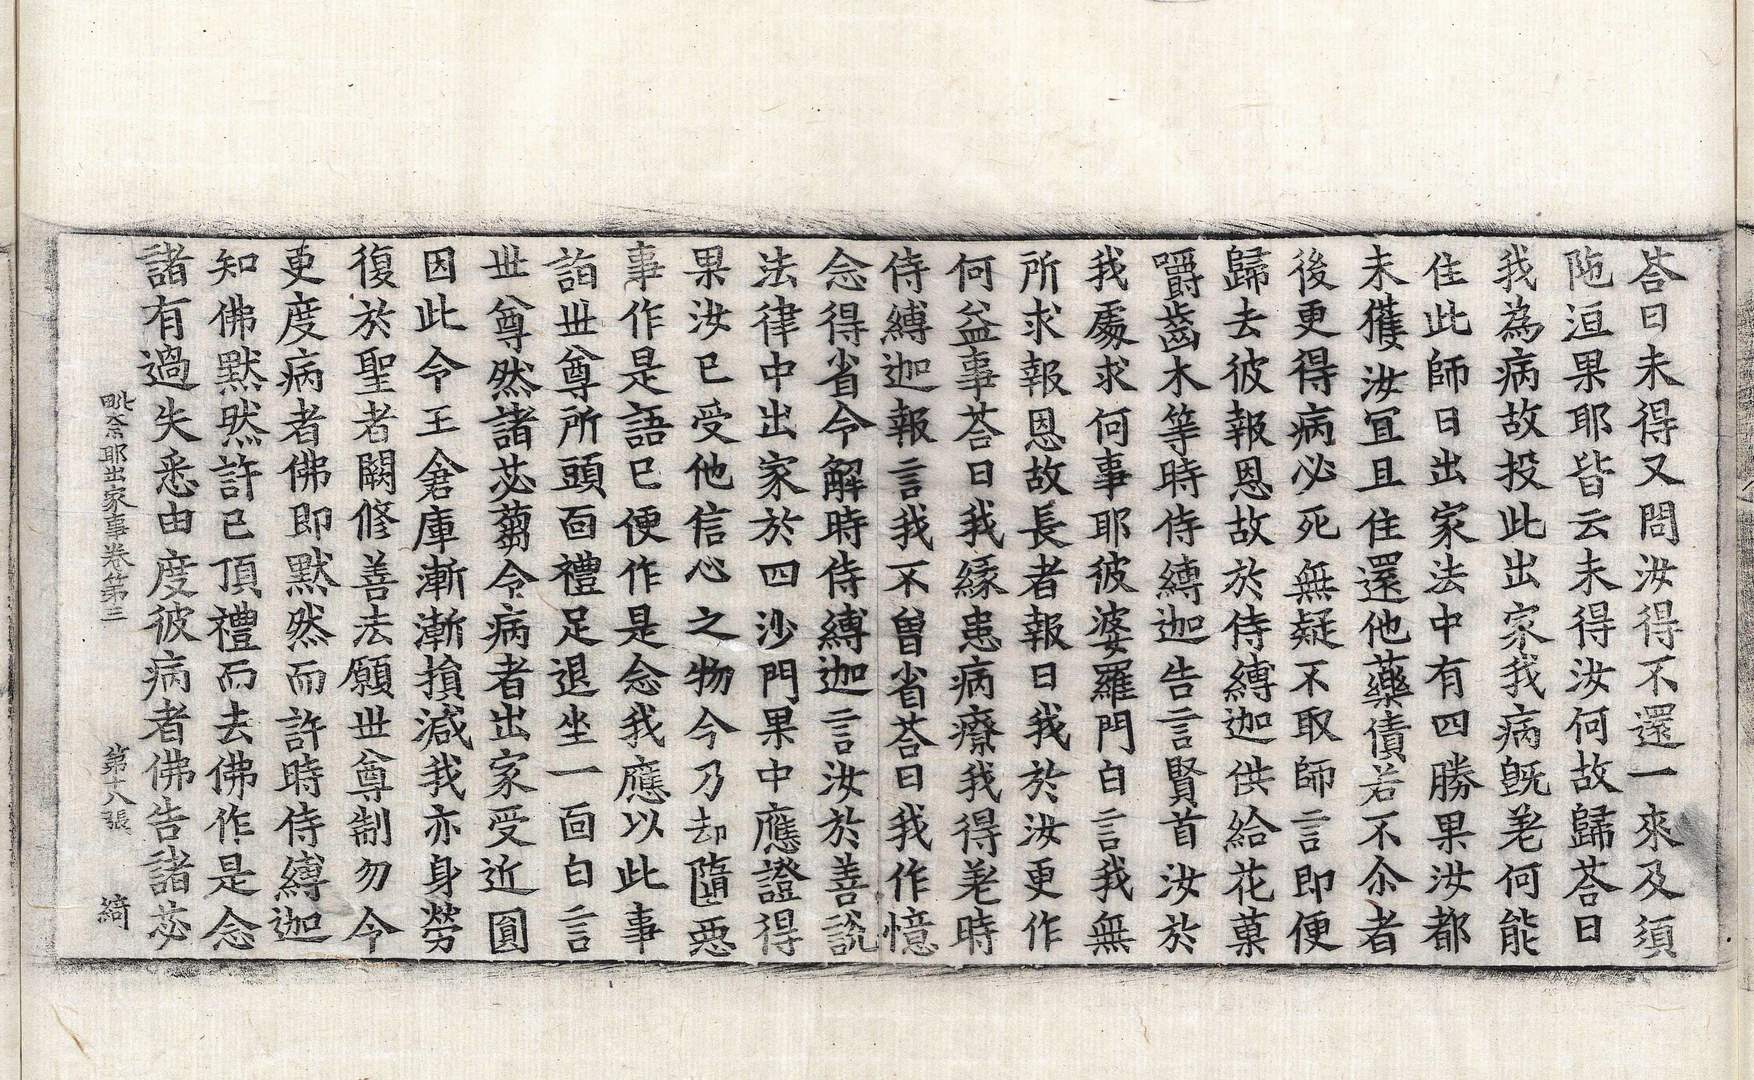 荅曰未得又問汝得不還一來及須
陁洹果耶皆云未得汝何故歸荅曰
我為病故投此出家我病旣差何能
住此師曰出家法中有四勝果汝都
未獲汝冝且住還他藥債若不尒者
後更得病必死無疑不取師言即便
歸去彼報恩故於侍縛迦供給花菓
嚼齒木等時侍縛迦告言賢首汝於
我處求何事耶彼婆羅門白言我無
所求報恩故長者報曰我於汝更作
何益事荅曰我緣患病療我得差時
侍縛迦報言我不曽省荅曰我作憶
念得省令解時侍縛迦言汝於善說
法律中出家於四沙門果中應證得
果汝已受他信心之物今乃却隨惡
事作是語已便作是念我應以此事
詣世尊所頭面禮足退坐一面白言
世尊然諸苾蒭令病者出家受近圓
因此令王倉庫漸漸損減我亦身勞
復於聖者闕修善法願世尊制勿令
更度病者佛即默然而許時侍縛迦
知佛默然許已頂禮而去佛作是念
諸有過失悉由度彼病者佛告諸苾
毗奈耶出家事卷第三 第十八張 綺